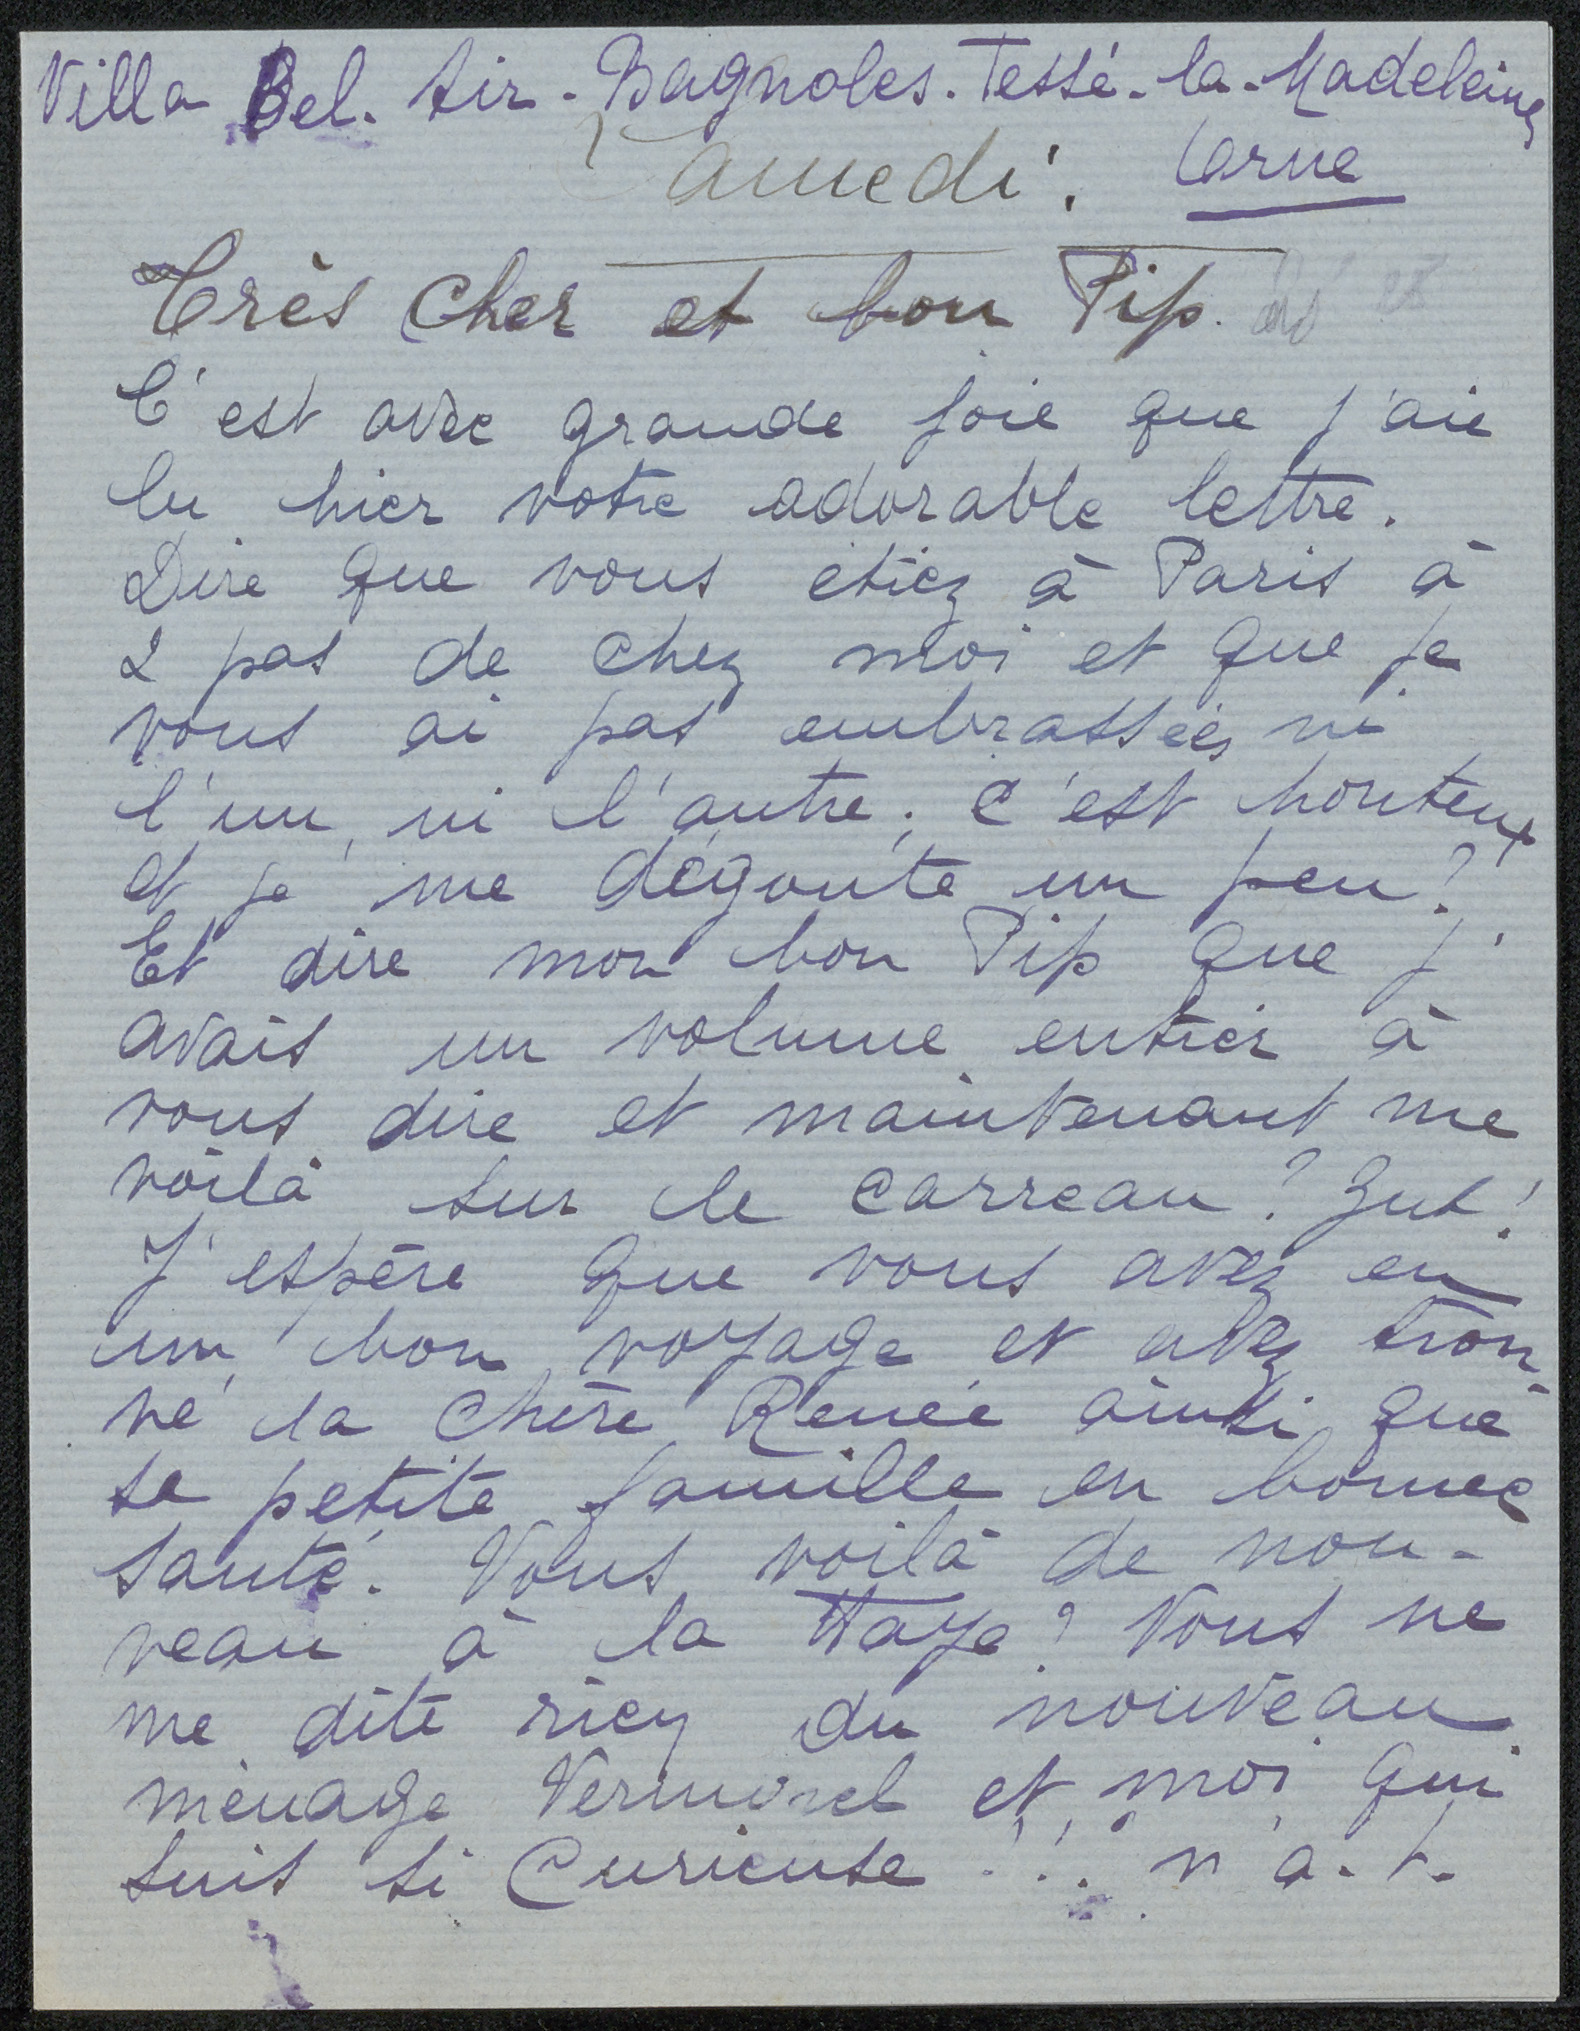 Villa Bel. Air - Bagnoles. Tessé. la. Madeleine
Samedi. Orne
Très Cher et bon Pip.
C'est avec grande joie que j'aie
lu hier votre adorable lettre.
Dire que vous êtiez à Paris à
2 pas de chez moi et que je
vous ai pas embrassées ni
l'un, ni l'autre. C'est honteux
et je me dégoute un peu!
Et dire mon bon Pip que j'
avais un volume entier à
vous dire et maintenant me
voilà sur le carreau? Zut!
J'espère que vous avez eu
un bon voyage et avez trou-
vé la chère Renée ainsi que
sa petite famille en bonne
santé. Vous voilà de nou-
veau à la Haye? Vous ne
me dite rien du nouveau
ménage Vermorel et moi qui
suis si Curieuse...! n'a.t.